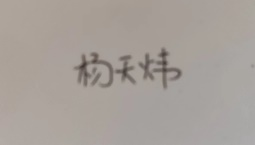 杨天炜